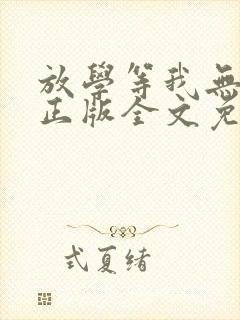 放學等我無
正版全文免
式夏绪